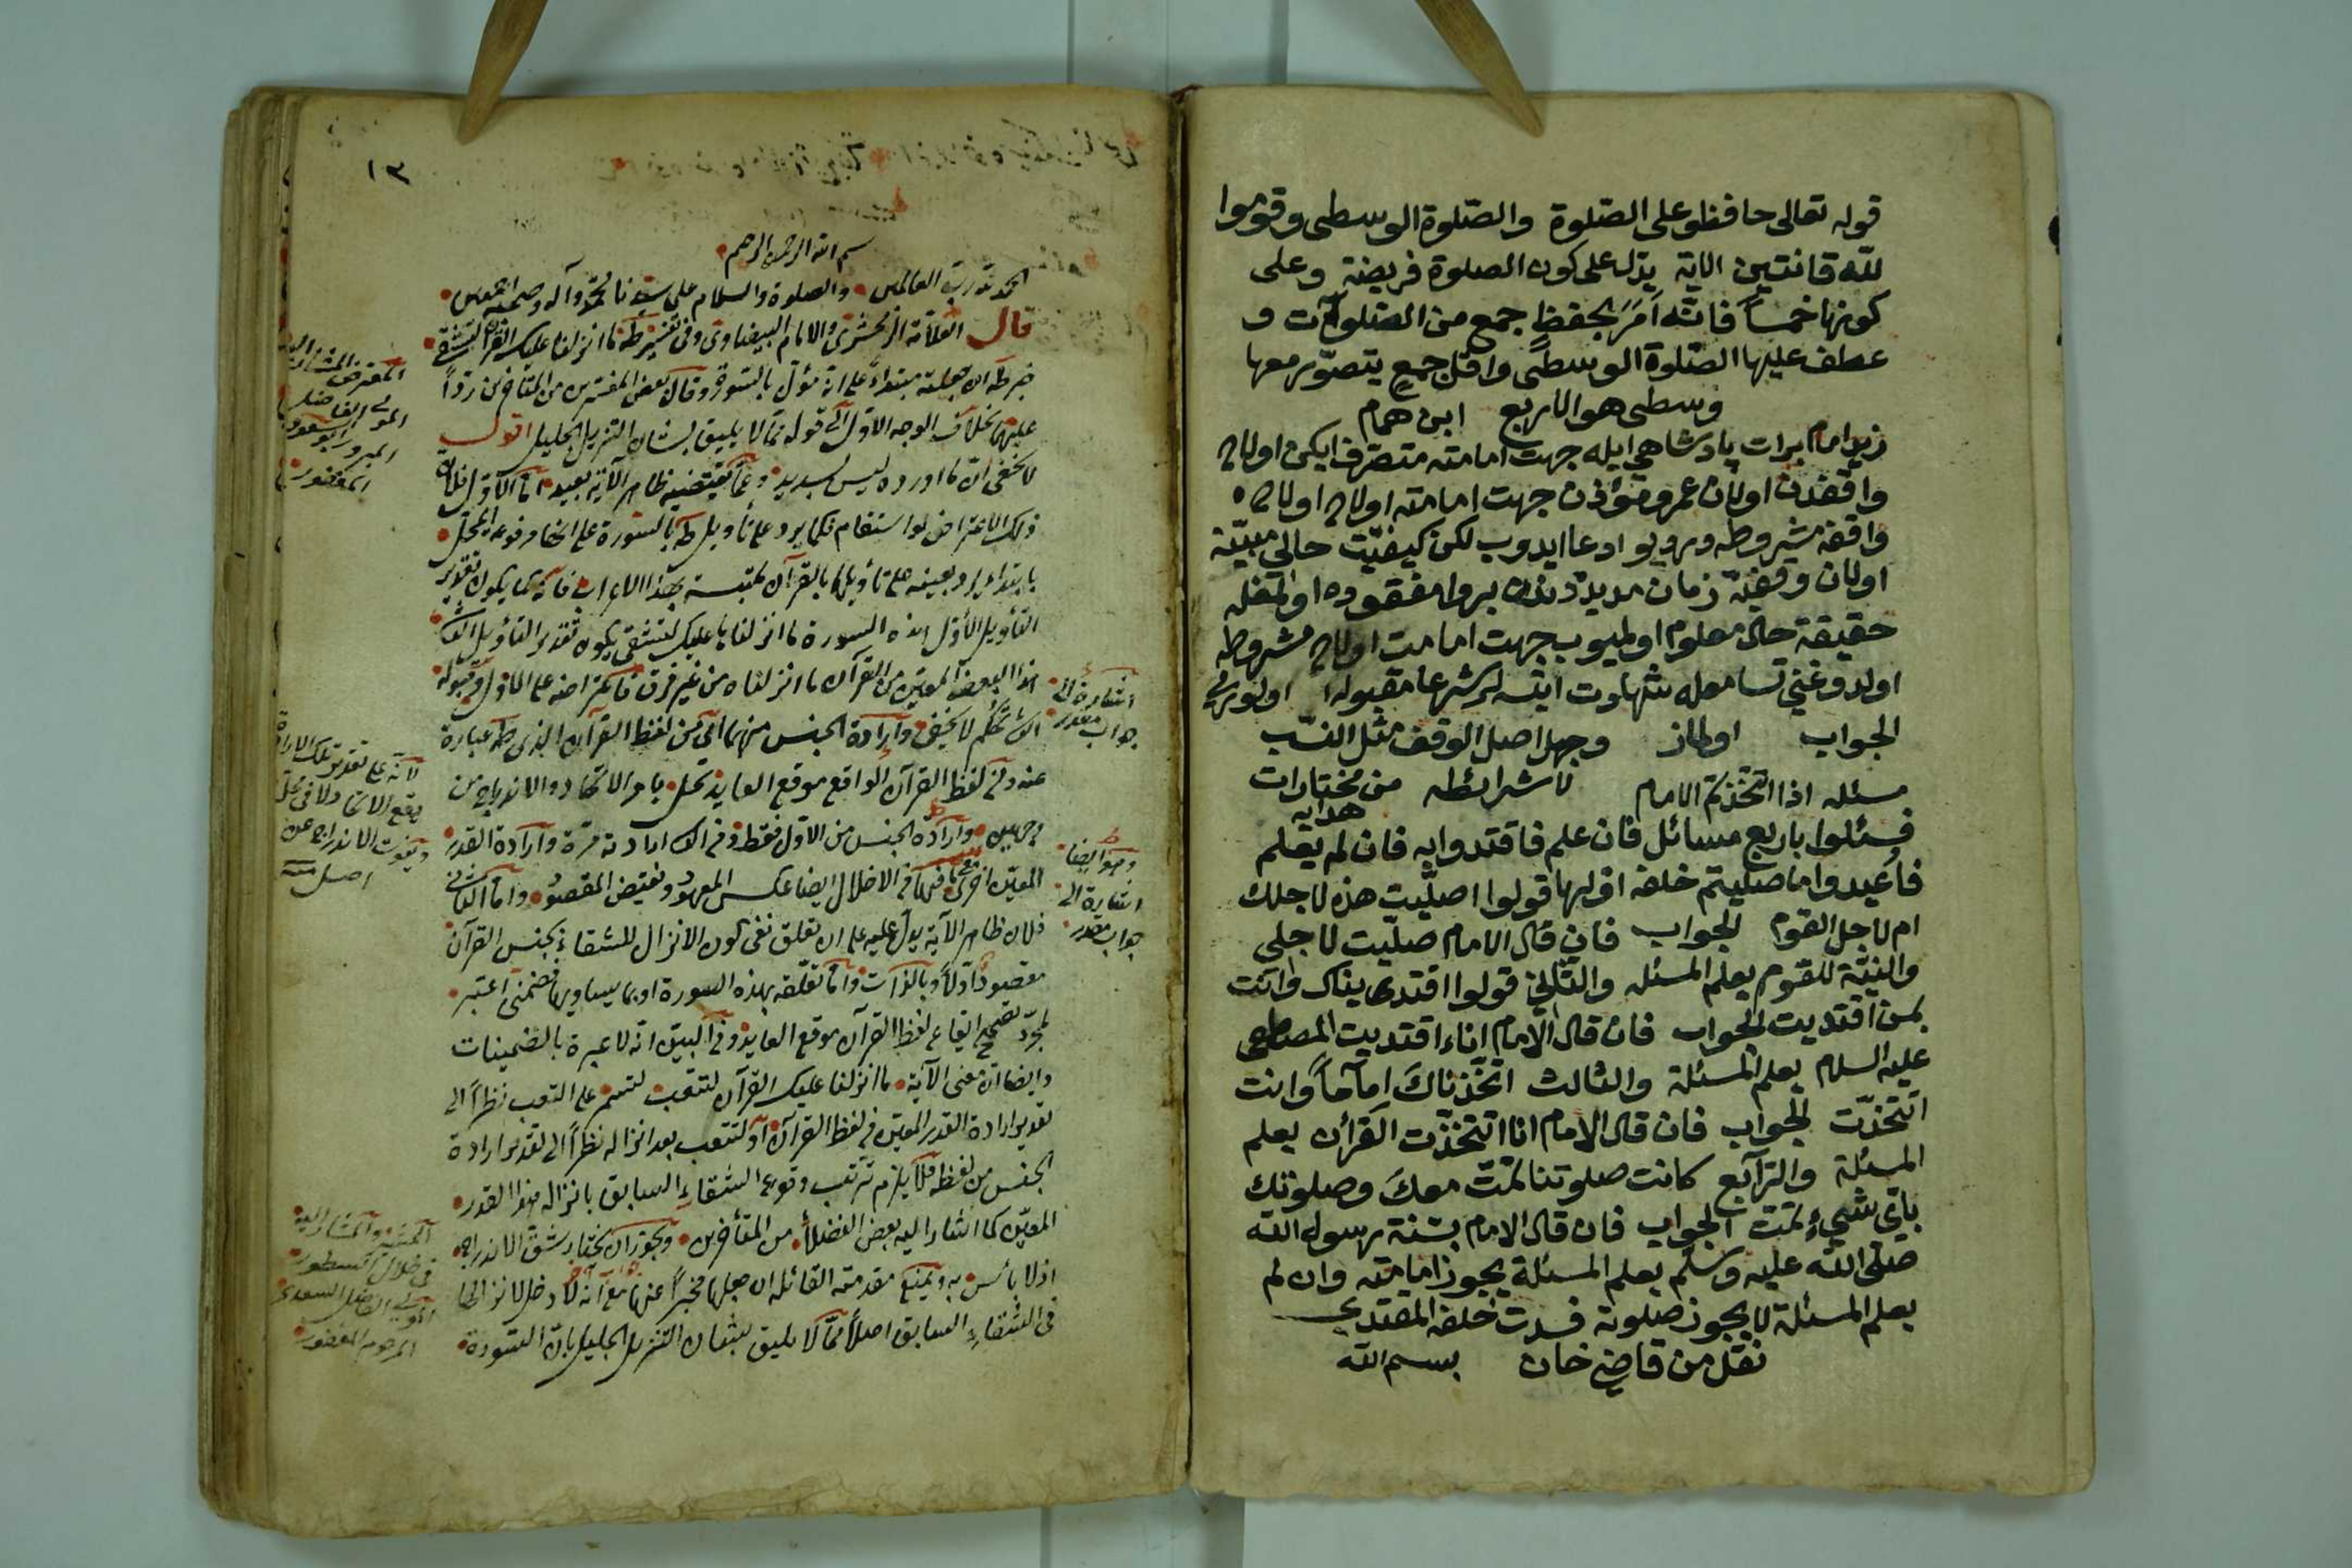 قوله تعالى حافظوا على الصّلوة والصّلوة الوسطى وقوموا
لله قانتين الاية يدّل على كون الصلوة فريضة وعلى
كونها خمساً فانّه اَمَرَ بحفظٍ جمع من الصّلوات و
عطف عليها الصّلوة الوسطى واقلّ جمعٍ يتصوّر معها
وسطى هو الاربع ابن همام
زيد امام برات پادشاهي ايله جهت امامته متصرف ايكن اولاح
واقفدن اولان عمرو مؤذن جهت امامته اولاح اولاح
واقفه مشروطه در ديو ادعا ايدوب لكن كيفيّت حالى مبيّنة
اولان وقفيّه زمان مديددنبرو مفقوده اولمغله
حقيقة حال معلوم اولميوب جهت امامت اولاح مشروطه
اولدوغني تسامعله شهادت ايتسلر شرعا مقبوله اولورمي
الجواب اولماز وجهل اصل الوقف مثل النسب
لا شرائطه من مختارات هدايه
مسئله اذا اتّخذتم الامام
فسئلوا باربع مسائل فان علم فاقتدوا به فان لم يعلم
فاعيدوا ما صلّيتم خلفه اوّلها قولوا اصلّيت هذه لاجلك
ام لاجل القوم الجواب فان قال الامام صلّيت لاجلى
والنيّة للقوم يعلم المسئله والثّانى قولوا اقتدى يناك وانت
بمن اقتديت الجواب فان قال الامام اناء اقتديت المصطفى
عليه السلام يعلم المسئلة والثالث اتّخذناكَ اِماماً وانت
اتتخذّت الجواب فان قال الامام انا اتتخذّت القرأن يعلم
المسئلة والرّابع كانت صلوتنا تمّت معكَ وصلوتك
باىّ شىءٍ تمّت الجواب فان قال الامام بسنّة رسول الله
صلّى الله عليه وسلّم يعلم المسئلة يجوز امامته وان لم
يعلم المسئلة لا يجوز صلوته فسدت خلفه المقتدى
نقل من قاضى خان بسم الله
١٣
بسم الله الرحمن الرحيم
الحمد لله ربّ العالمين والصلوة والسلام على سيّدنا محمّد وآله وصحبه اجمعين
قال العلّامة الزمخشرى والامام البيضاوى فى تفسير طه ما انزلنا عليك القرآن لتشقى
خبر طه ان جعلته مبتداءً على انّه مؤوّل بالسّورة وقال بعض المفسّرين من المتأخرين ردّاً
عليهما بخلاف الوجه الاوّل الى قوله ممّا لا يليق بشان التنزيل الجليل اقول
لا يخفى انّ ما اورده ليس بسديد وعمّا يقتضيه ظاهر الآية بعيد امّا الاوّل فلانّ
ذلك الاعتراض لو استقام فكما يرد على تأويل طه بالسّورة على انّها مرفوعة المحلّ
بابتداء يرد بعينه على تأويلها بالقرآن ملتبسة بهذا الاعراب فانّه كما يكون تقدير
التأويل الاوّل هذه السورة ما انزلناها عليك لتشقى يكون تقدير التأويل الثانى
هذا البعض المعيّن من القرآن ما انزلناه من غير فرق فاعتراضه على الاوّل وقبوله
الثانى تحكّم لا يخفى وارادة الجنس منهما اى من لفظ القرآن الذى طه عبارة
عنه ومن لفظ القرآن الواقع موقع العايد تخلّ بامر الاتحاد والاندراج من
وجهين وارادة الجنس من الاوّل فقط وفى الثانى ارادته مرّة وارادة القدر
المعيّن اخرى فيما فى الاخلال ايضا عكس المعهود ونقيض المقصود وامّا الثانى
فلان ظاهر الآية يدلّ عليه على ان تعلّق نفى كون الانزال للشقاء بجنس القرآن
مقصود اوّلاً وبالذّات وامّا تعلّقه بهذه السورة او بما يساويها فضمنى اعتبر
لمجرّد تصحيح ايقاع لفظ القرآن موقع العايد وفى البيّن انّه لا عبرة بالضّمنيات
وايضا انّ معنى الآية ما انزلنا عليك القرآن لتتعب لتستمر على التعب نظراً الى
تقدير ارادة القدر المعيّن فى لفظ القرآن او لتتعب بعد انزاله نظراً الى تقدير ارادة
الجنس من لفظه فلا يلزم ترتّب وقوع الشقاء السابق بانزاله هذا القدر
المعيّن كما اشار اليه بعض الفضلاء من المتأخرين ويجوز ان يختار شقّ الاندراج
اذ لا بأس به ويمنع مقدمته القائله ان جعلها مخبراً عنها مع انّه لا دخل لانزالها
فى الشقاء السابق اصلاً ممّا لا يليق بشان التنزيل الجليل بانّ السّورة
المولى الفاضل
المبرور ابو السعود
المغفور
اشارة الى
جواب مقدر
لانّه على تقدير تلك الارادة
يقع الاتحاد
ويفوت الاندراج عن
اصل
وهو ايضا
اشارة الى
جواب مقدر
المولى الفاضل السعدى
المرحوم المغفور